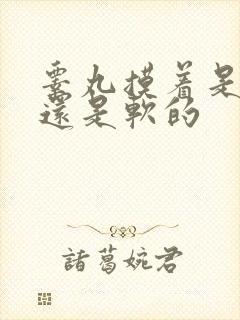 睾丸摸着是
還是軟的
諸葛婉君